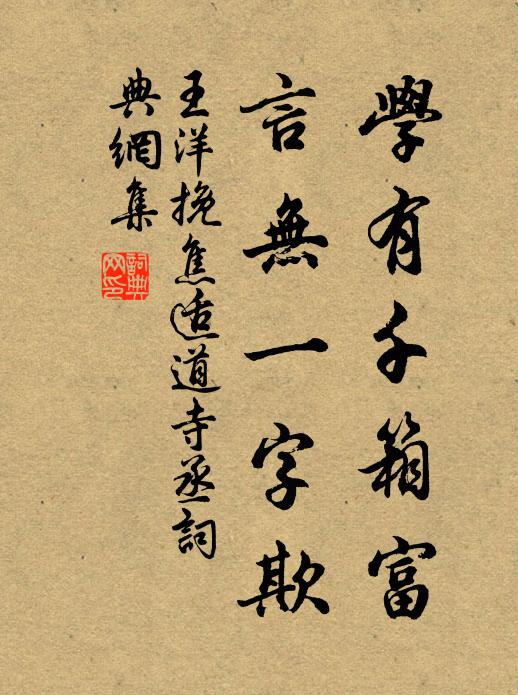 學有千箱富
言無一字欺
王洋挽焦适道寺丞詞
典網集
詞典網印